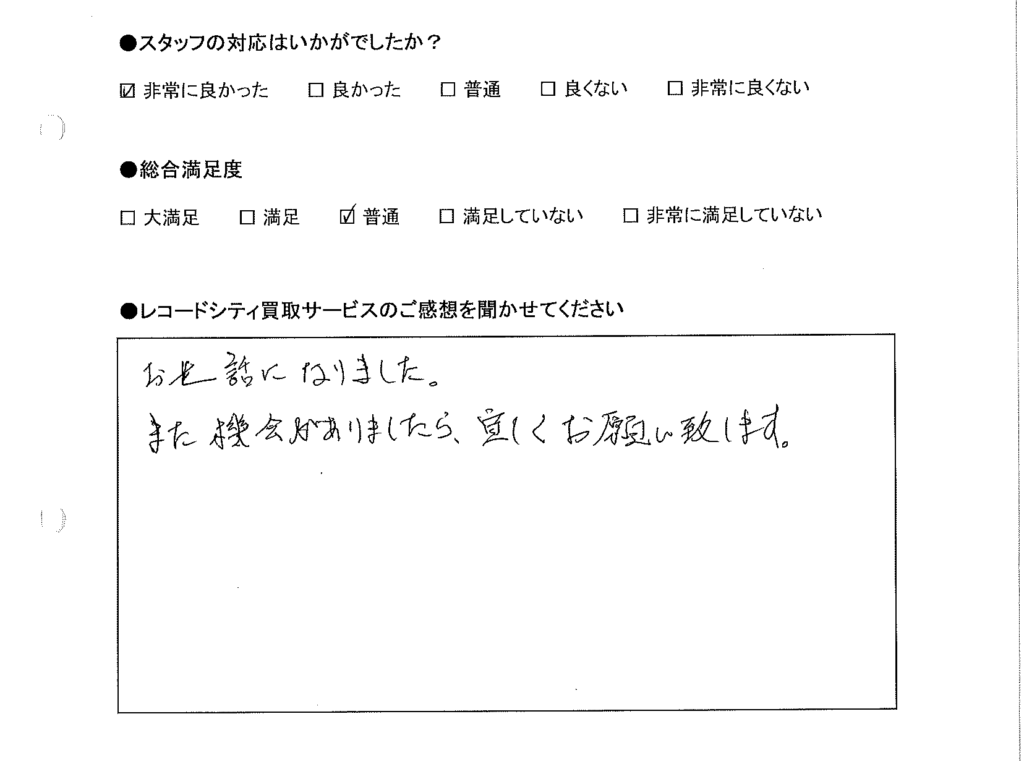 ●スタッフの対応はいかがでしたか？
☑ 非常に良かった □ 良かった □ 普通 □ 良くない □ 非常に良くない
●総合満足度
□ 大満足 □ 満足 ☑ 普通 □ 満足していない □ 非常に満足していない
●レコードシティ買取サービスのご感想を聞かせてください
お世話になりました。
また機会がありましたら、宜しくお願い致します。